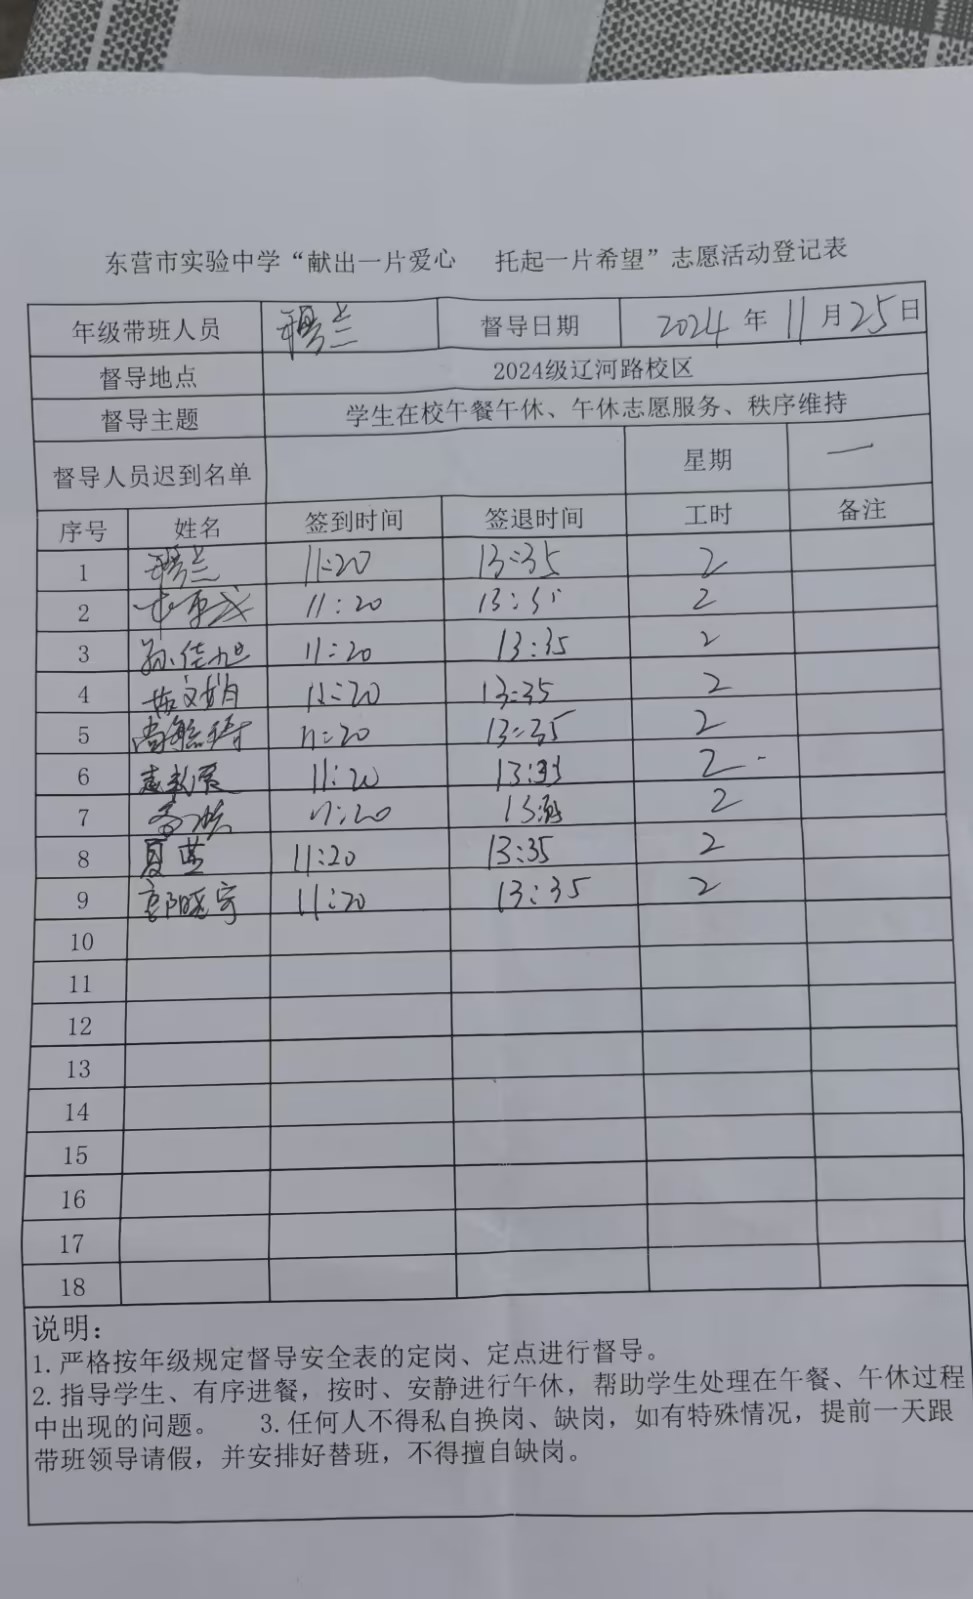 东营市实验中学“献出一片爱心 托起一片希望”志愿活动登记表
年级带班人员 穆兰 督导日期 2024年11月25日
督导地点 2024级辽河路校区
督导主题 学生在校午餐午休、午休志愿服务、秩序维持
督导人员迟到名单 星期 一
序号 姓名 签到时间 签退时间 工时 备注
1 穆兰 11:20 13:35 2
2 11:20 13:35 2
3 孙佳旭 11:20 13:35 2
4 文娟 11:20 13:35 2
5 尚 11:20 13:35 2
6 11:20 13:35 2
7 11:20 13:35 2
8 夏蓝 11:20 13:35 2
9 郭晓宇 11:20 13:35 2
10
11
12
13
14
15
16
17
18
说明:
1.严格按年级规定督导安全表的定岗、定点进行督导。
2.指导学生、有序进餐，按时、安静进行午休，帮助学生处理在午餐、午休过程
中出现的问题。 3.任何人不得私自换岗、缺岗，如有特殊情况，提前一天跟
带班领导请假，并安排好替班，不得擅自缺岗。